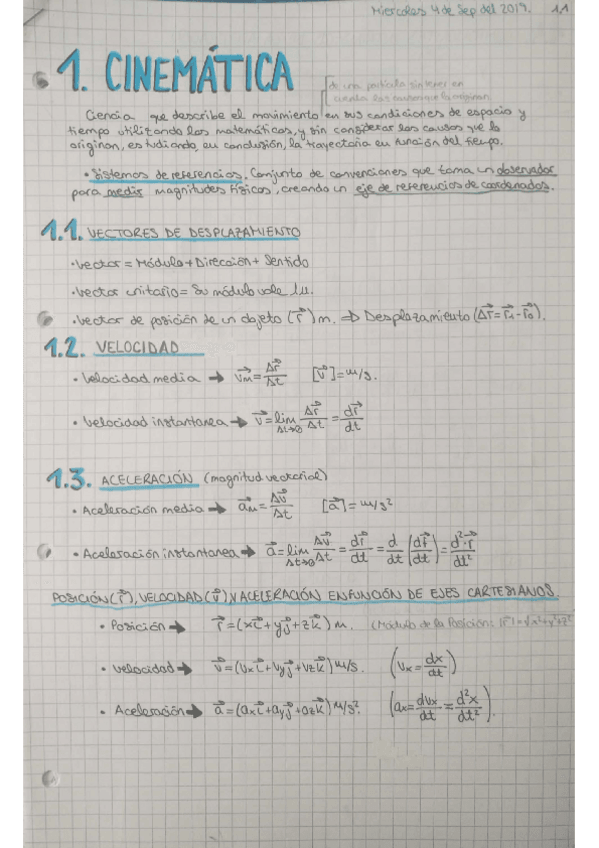 Miercoles 4 de Sep del 2019. 1.1
1. CINEMÁTICA
de una partícula sin tener en
cuenta las causas que la originan
Ciencia que describe el movimiento en sus condiciones de espacio y
tiempo utilizando las matemáticas, y sin considerar las causas que lo
originan, estudiando, en conclusión, la trayectoria en función del tiempo.
• Sistemas de referencias. Conjunto de convenciones que toma un observador
para medir magnitudes físicas, creando un eje de referencias de coordenadas.
1.1. VECTORES DE DESPLAZAMIENTO
• Vector = Módulo + Dirección + Sentido
• Vector unitario = Su módulo vale 1u.
• Vector de posición de un objeto (r⃗) m. ⇒ Desplazamiento (Δr⃗ = r⃗₁ - r⃗₀).
1.2. VELOCIDAD
• Velocidad media → v⃗ₘ = Δr⃗/Δt [v⃗] = m/s.
• Velocidad instantanea → v⃗ = lim Δt→0 Δr⃗/Δt = dr⃗/dt
1.3. ACELERACIÓN (magnitud vectorial)
• Aceleración media → a⃗ₘ = Δv⃗/Δt [a⃗] = m/s²
• Aceleración instantanea → a⃗ = lim Δt→0 Δv⃗/Δt = dr⃗/dt = d/dt (dr⃗/dt) = d²·r⃗/dt²
POSICIÓN (r⃗), VELOCIDAD (v⃗) Y ACELERACIÓN EN FUNCIÓN DE EJES CARTESIANOS.
• Posición → r⃗ = (xi⃗ + yj⃗ + zk⃗) m. (Módulo de la Posición: |r⃗| = √x²+y²+z²
• Velocidad → v⃗ = (vₓi⃗ + vyj⃗ + vzk⃗) m/s. (vₓ = dx/dt)
• Aceleración → a⃗ = (aₓi⃗ + ayj⃗ + azk⃗) m/s². (aₓ = dvₓ/dt = d²x/dt²).